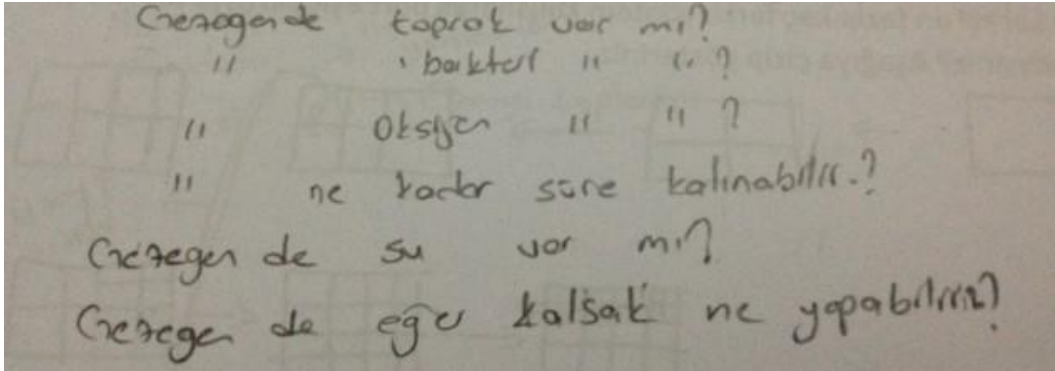 Gezegende toprak var mı?
" bakteri " " ?
" Oksijen " " ?
" ne kadar süre kalınabilir.?
Gezegen de su var mı?
Gezegen de eğer kalsak ne yapabiliriz?